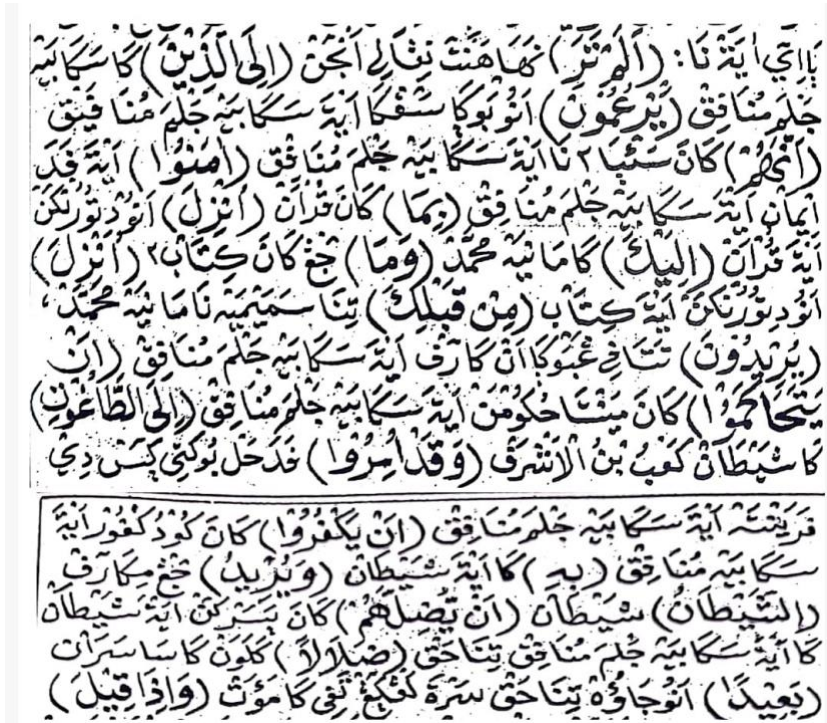 نا اتي أية نا: (اَلَمْ تَرَ) نها هنت نڠالي انجن (اِلَى الَّذِيْنَ) كا سكابيه
جلم منافق (يَزْعُمُونَ) انو بوكا سڠكا اية سكابيه جلم منافيق
(اَنَّهُمْ) كان ستها٢ نا اية سكابيه جلم منافق (اٰمَنُوا) اية قد
ايمان اية سكابيه جلم منافق (بِمَا) كان قرأن (اُنْزِلَ) انو دتورنكن
اية قرأن (اِلَيْكَ) كا مانيه محمد (وَمَا) جڠ كان كتاب٢ (اُنْزِلَ)
انو دتورنكن اية كتاب (مِنْ قَبْلِكَ) تنا سميميه نا مانيه محمد،
(يُرِيْدُونَ) اية سكابيه جلم منافق (اَنْ
يَتَحَاكَمُوْا) كان مينتا حكومن اية سكابيه جلم منافق (اِلَى الطَّاغُوْتِ)
كا شيطان كعب بن الاشرف (وَقَدْ اُمِرُوا) قد حل بوكتي كس دي
فرينته اية سكابيه جلم منافق (اَنْ يَكْفُرُوْا) كان كود كفور اية
سكابيه منافق (بِهِ) كا اية شيطان (وَيُرِيْدُ) جڠ مكارف
(الشَّيْطَانُ) شيطان (اَنْ يُضِلَّهُمْ) كان يسركن اية شيطان
كا اية سكابيه جلم منافق تنا حق (ضَلَالًا) كلون كا ساسران
(بَعِيْدًا) انو جاؤه تنا حق (وَاِذَا قِيْلَ)